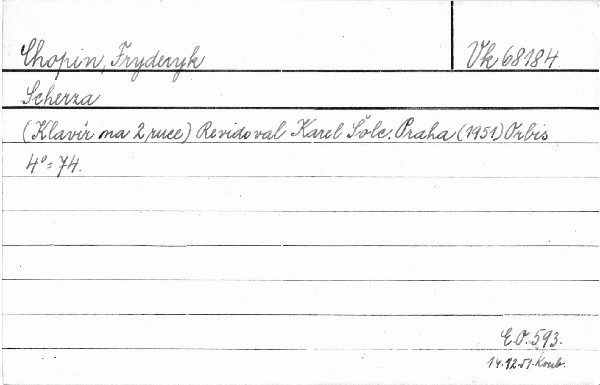 Chopin, Fryderyk Vk 68184
Scherza
(Klavír na 2 ruce) Revidoval Karel Šolc. Praha (1951) Orbis
4° = 74.
E.O. 593.
14.12.51. Koub.